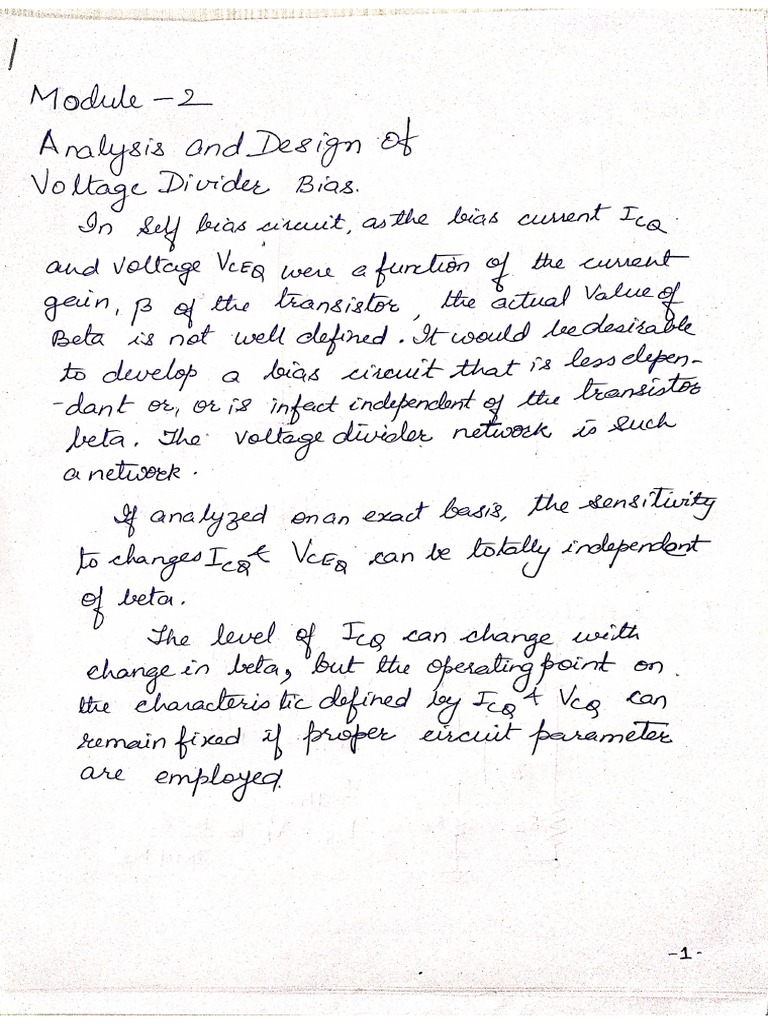 Module - 2
Analysis and Design of
Voltage Divider Bias.
In Self bias circuit, as the bias current ICQ
and voltage VCEQ were a function of the current
gain, β of the transistor, the actual Value of
Beta is not well defined. It would be desirable
to develop a bias circuit that is less depen-
-dant or, or is infact independent of the transistor
beta. The voltage divider network is such
a network.
If analyzed on an exact basis, the sensitivity
to changes ICQ & VCEQ can be totally independant
of beta.
The level of ICQ can change with
change in beta, but the operating point on
the characteristic defined by ICQ & VCQ can
remain fixed if proper circuit parameter
are employed.
-1-